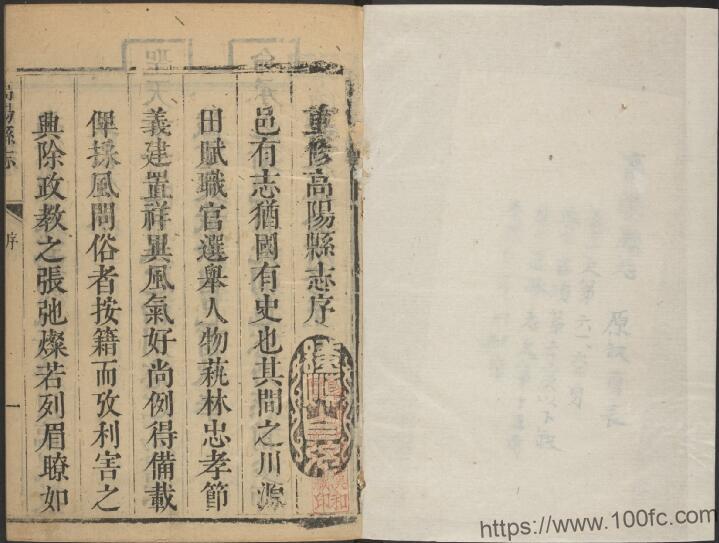 重修高陽縣志序
邑有志猶國有史也其間之川源
田賦職官選舉人物蓺林忠孝節
義建置祥異風氣好尚例得備載
俾採風問俗者按籍而攷利害之
興除政教之張弛燦若列眉瞭如
高陽縣志
序
一
https://www.100fc.com